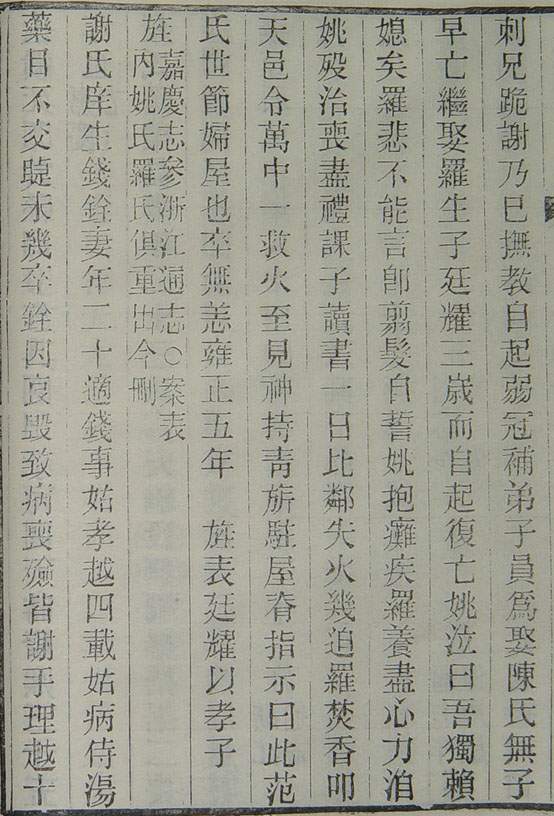 刺兄跪謝乃已撫教自起弱冠補弟子員爲娶陳氏無子
早亡繼娶羅生子廷耀三歲而自起復亡姚泣曰吾獨賴
媳矣羅悲不能言卽翦髮自誓姚抱癱疾羅養盡心力洎
姚歿治喪盡禮課子讀書一日比鄰失火幾迫羅焚香叩
天邑令萬中一救火至見神持靑旂駐屋脊指示曰此范
氏世節婦屋也卒無恙雍正五年 旌表廷耀以孝子
旌嘉慶志參浙江通志○案表
內姚氏羅氏俱重出今刪
謝氏庠生錢銓妻年二十適錢事姑孝越四載姑病侍湯
藥目不交睫未幾卒銓因哀毀致病喪殮皆謝手理越十